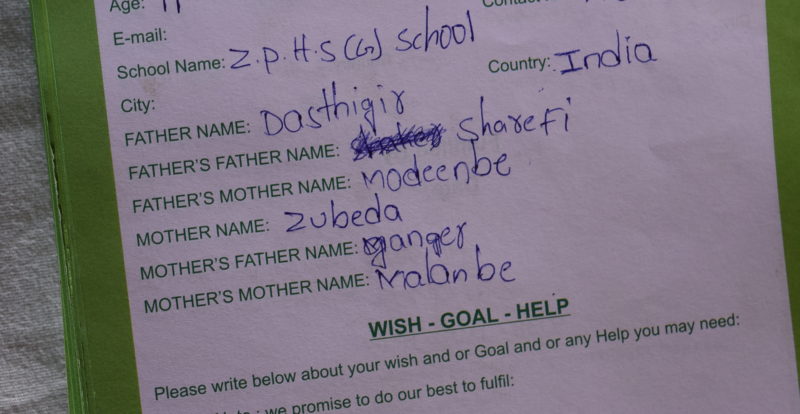 Age: 11
E-mail:
School Name: Z.P.H.S (G) School
Country: India
City:
FATHER NAME: Dasthigir
FATHER'S FATHER NAME: Sharefi
FATHER'S MOTHER NAME: Modeenbe
MOTHER NAME: Zubeda
MOTHER'S FATHER NAME: yanger
MOTHER'S MOTHER NAME: Malanbe
WISH - GOAL - HELP
Please write below about your wish and or Goal and or any Help you may need:
we promise to do our best to fulfil: